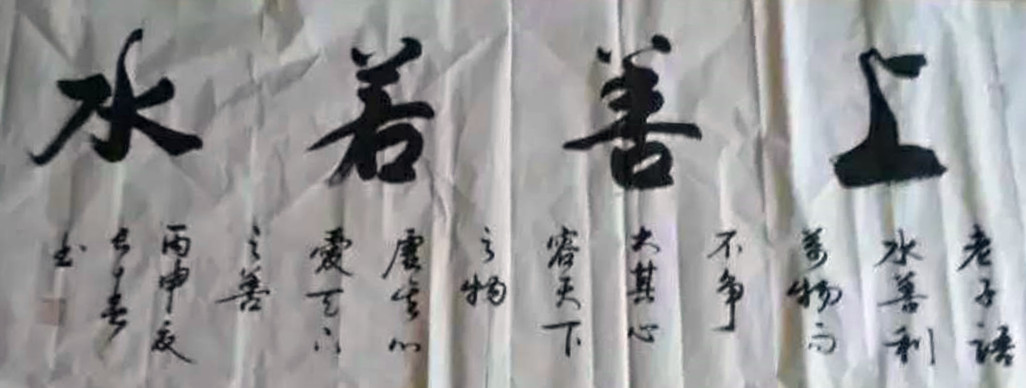 上善若水
老子語
水善利
萬物而
不争
大其心
容天下
之物
虛其心
愛天下
之善
丙申夏
书